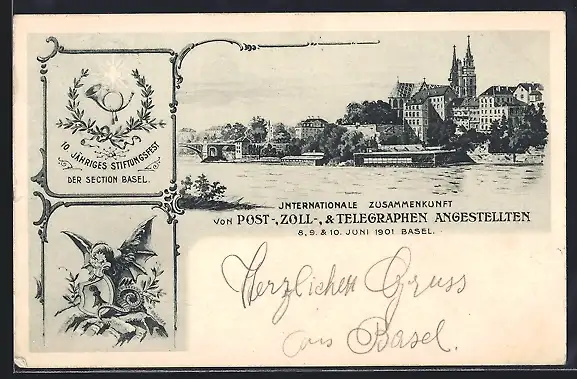 10 JÄHRIGES STIFTUNGSFEST
DER SECTION BASEL.
JNTERNATIONALE ZUSAMMENKUNFT
VON POST-, ZOLL-, & TELEGRAPHEN ANGESTELLTEN
8, 9. & 10. JUNI 1901 BASEL.
Herzlichen Gruss
aus Basel.